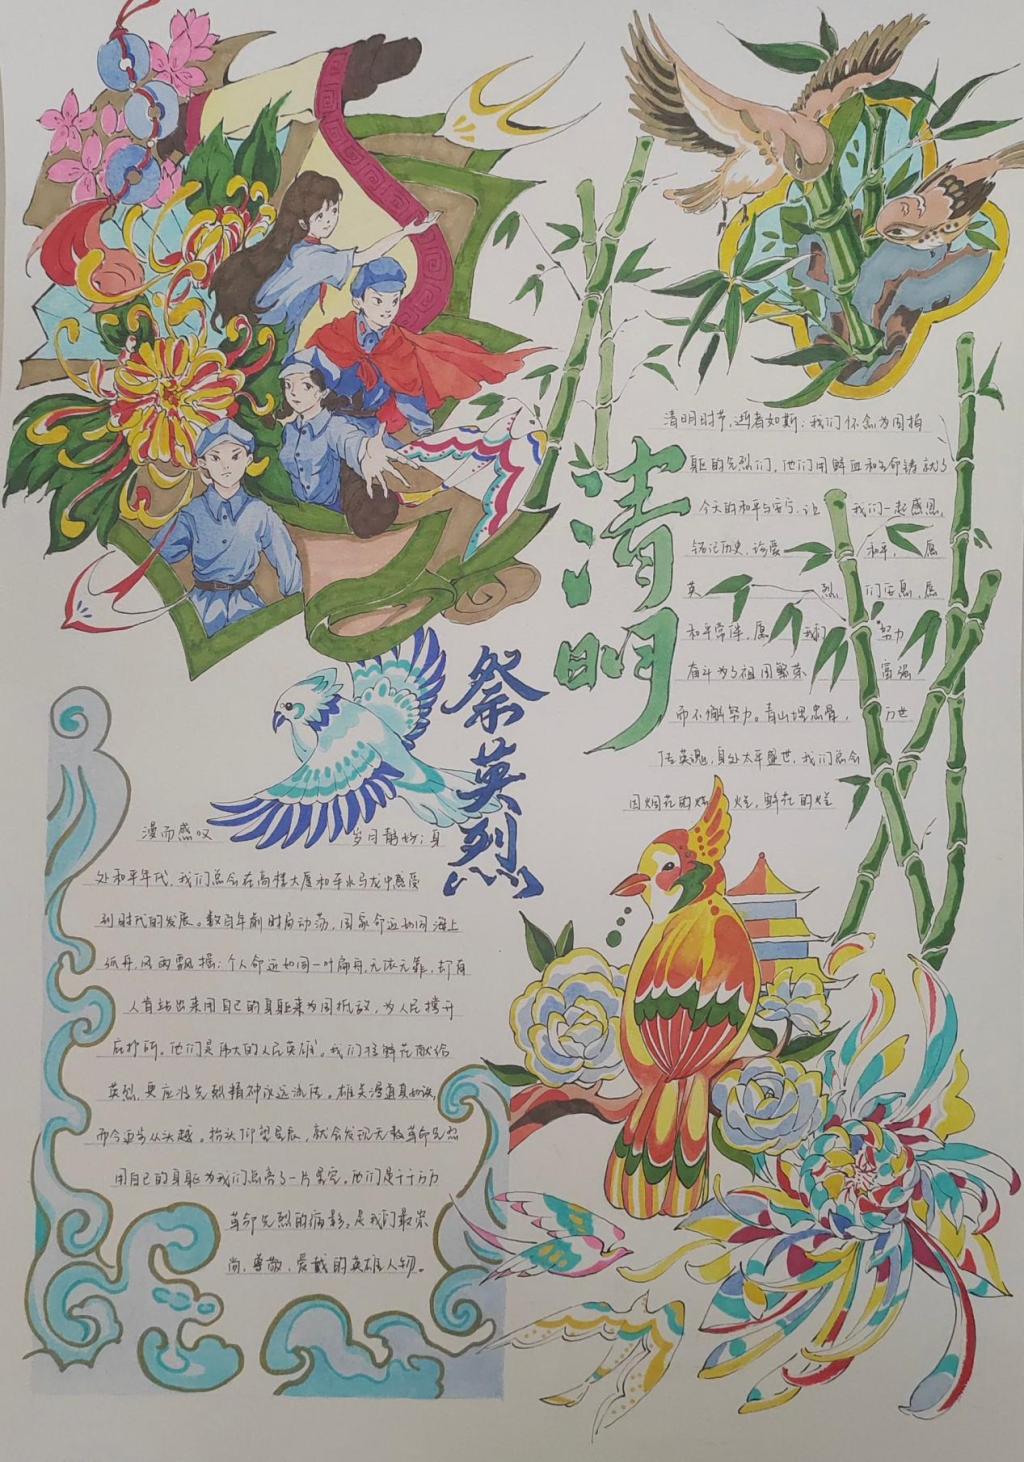 清明
祭英烈
清明时节，逝者如斯；我们怀念为国捐
躯的先烈们，他们用鲜血和生命铸就了
今天的和平与安宁，让我们一起感恩，
铭记历史，珍爱和平，愿
英烈们安息，愿
和平常伴，愿我们努力
奋斗为了祖国繁荣富强
而不懈努力。青山埋忠骨，万世
传英魂，身处太平盛世，我们总会
因烟花的灿烂，鲜花的烂
漫而感叹岁月静好；身
处和平年代，我们总会在高楼大厦和车水马龙中感受
到时代的发展。数百年前时局动荡，国家命运如同海上
孤舟，风雨飘摇；个人命运如同一叶扁舟，无依无靠，却有
人肯站出来用自己的身躯来为国抵敌，为人民撑开
庇护所。他们是伟大的人民英雄。我们将鲜花献给
英烈，更应将先烈精神永远流传。雄关漫道真如铁，
而今迈步从头越。抬头仰望星辰，就会发现无数革命先烈
用自己的身躯为我们点亮了一片星空。他们是千千万万
革命先烈的缩影，是我们最崇
尚、尊敬、爱戴的英雄人物。